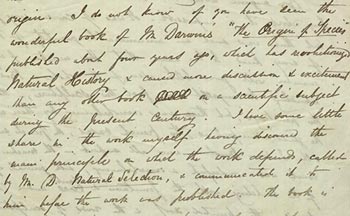 origin. I do not know if you have seen the
wonderful book of Mr Darwin's "The Origin of Species"
published about four years ago, which has revolutionized
Natural History & caused more discussion & excitement
than any other book on a scientific subject
during the present Century. I have some little
share in the work myself having discovered the
main principle on which the work depends, called
by Mr. D. Natural Selection, & communicated it to
him before the work was published. The book is